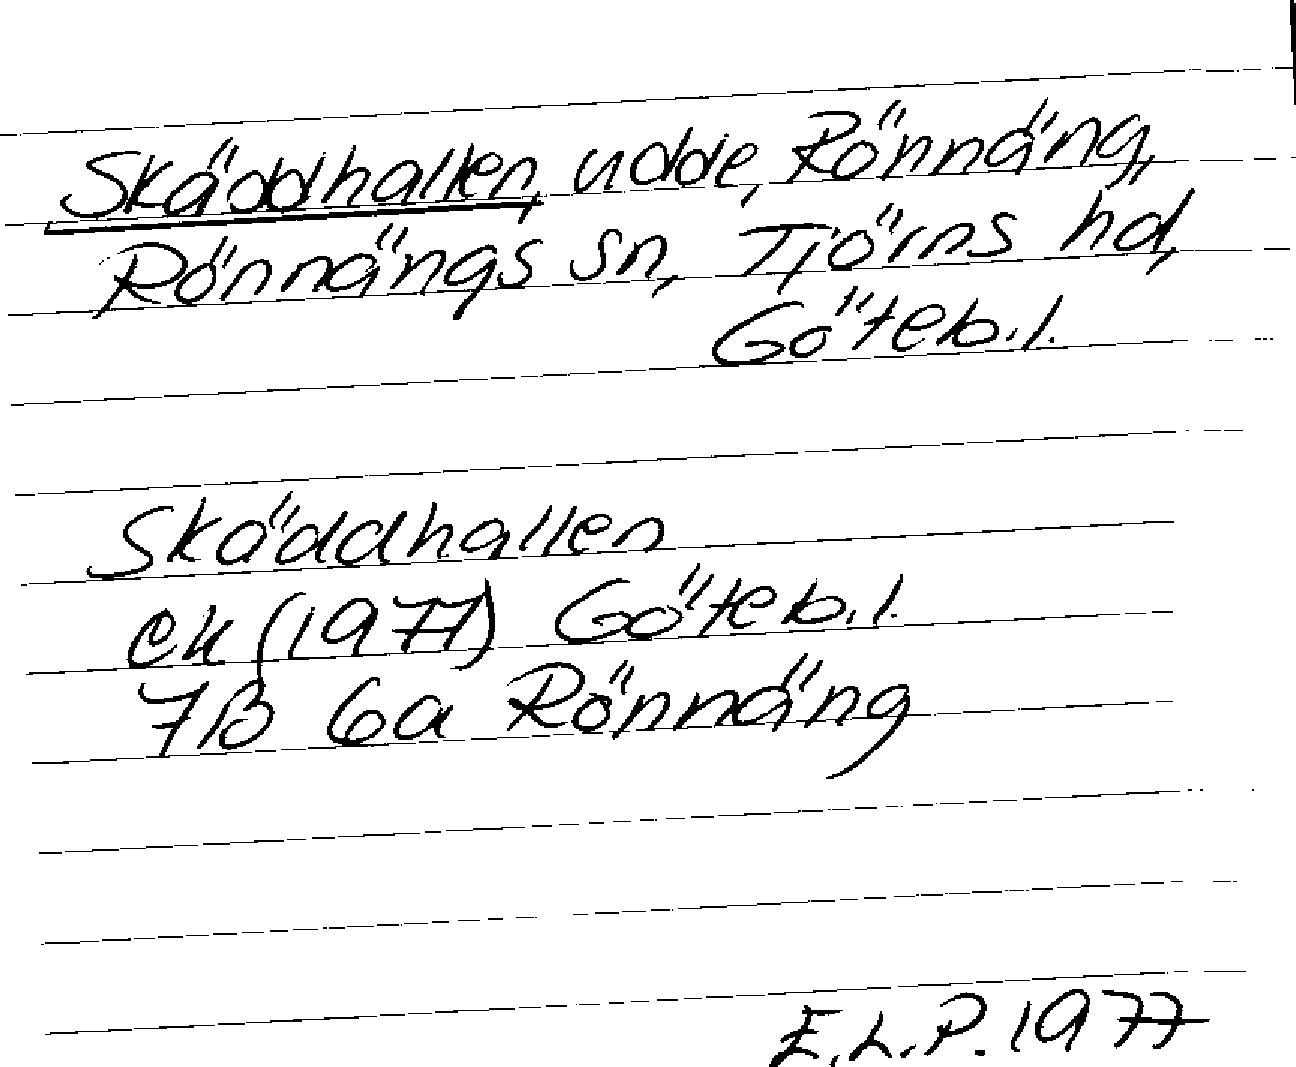 Skäddhallen, udde, Rönnäng,
Rönnängs sn, Tjörns hd,
Göteb.l.
Skäddhallen
ek (1977) Göteb.l.
7B 6a Rönnäng
E.L.P. 1977